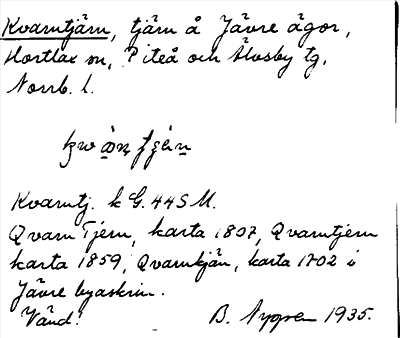 Kvarntjärn, tjärn å Jävre ägor,
Hortlax sn, Piteå och Älvsby tg,
Norrb. l.
Kvarntj. k G. 445 M.
Qvarn Tjern, karta 1807, Qvarntjern
karta 1859, Qvarnkjän, karta 1702 i
Jävre byaskrin.
Vänd! B. Nygren 1935.